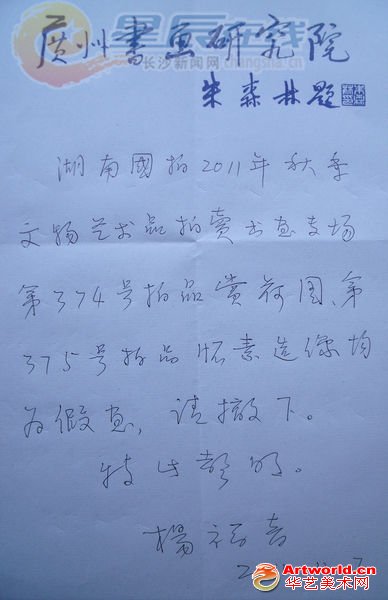 广州书画研究院
长沙新闻网
朱森林题
湖南國拍2011年秋季
文物艺术品拍卖书画专场
第374号拍品赏荷图、第
375号拍品怀素造像均
为假画，请撤下。
特此声明。
楊福音
Artworld.cn
华艺美术网